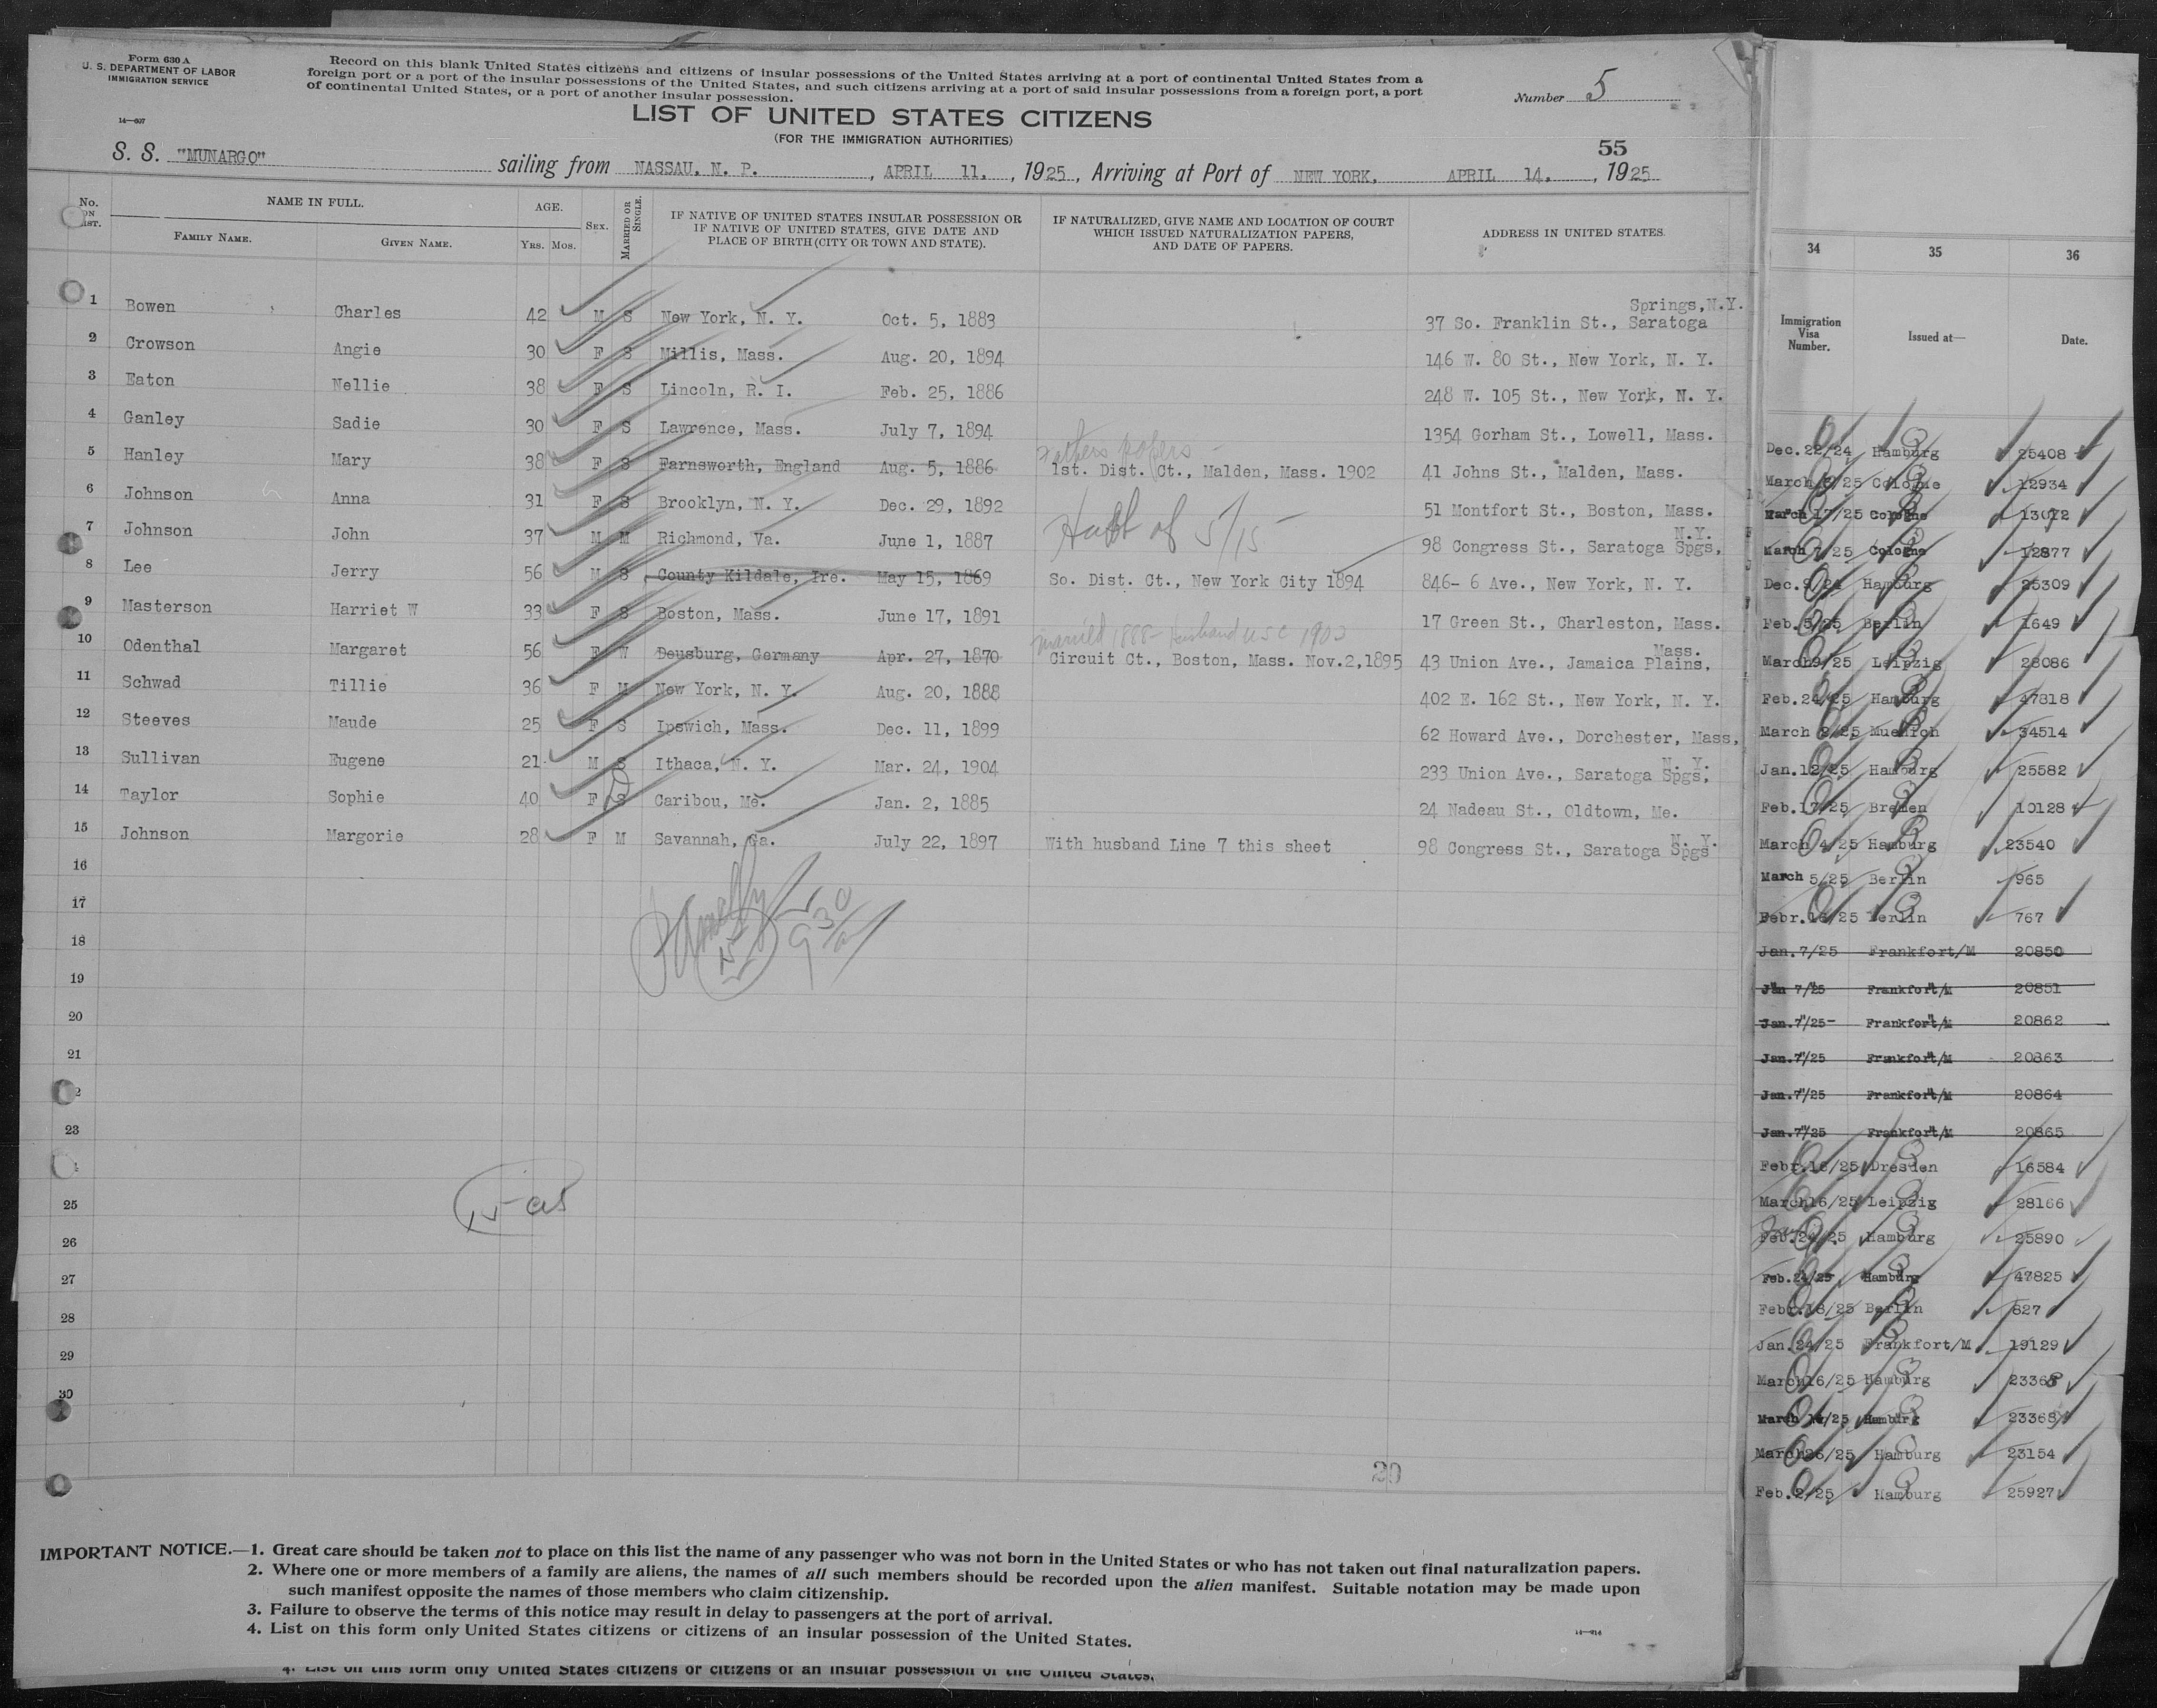 Form 630 A
U. S. DEPARTMENT OF LABOR
IMMIGRATION SERVICE
14—607
Record on this blank United States citizens and citizens of insular possessions of the United States arriving at a port of continental United States from a
foreign port or a port of the insular possessions of the United States, and such citizens arriving at a port of said insular possessions from a foreign port, a port
of continental United States, or a port of another insular possession.
Number 5
LIST OF UNITED STATES CITIZENS
(FOR THE IMMIGRATION AUTHORITIES)
55
S. S. "MUNARGO" sailing from NASSAU, N. P. , APRIL 11, , 1925, Arriving at Port of NEW YORK, APRIL 14, , 1925
No. ON LIST. NAME IN FULL. FAMILY NAME. GIVEN NAME. AGE. YRS. MOS. SEX. MARRIED OR SINGLE. IF NATIVE OF UNITED STATES INSULAR POSSESSION OR IF NATIVE OF UNITED STATES, GIVE DATE AND PLACE OF BIRTH (CITY OR TOWN AND STATE). IF NATURALIZED, GIVE NAME AND LOCATION OF COURT WHICH ISSUED NATURALIZATION PAPERS, AND DATE OF PAPERS. ADDRESS IN UNITED STATES.
1 Bowen Charles 42 M S New York, N. Y. Oct. 5, 1883 37 So. Franklin St., Saratoga Springs, N.Y.
2 Crowson Angie 30 F S Millis, Mass. Aug. 20, 1894 146 W. 80 St., New York, N. Y.
3 Eaton Nellie 38 F S Lincoln, R. I. Feb. 25, 1886 248 W. 105 St., New York, N. Y.
4 Ganley Sadie 30 F S Lawrence, Mass. July 7, 1894 1354 Gorham St., Lowell, Mass.
Fathers papers -
5 Hanley Mary 38 F S Farnsworth, England Aug. 5, 1886 1st. Dist. Ct., Malden, Mass. 1902 41 Johns St., Malden, Mass.
6 Johnson Anna 31 F S Brooklyn, N. Y. Dec. 29, 1892 51 Montfort St., Boston, Mass.
7 Johnson John 37 M M Richmond, Va. June 1, 1887 of 5/15 98 Congress St., Saratoga Spgs, N.Y.
8 Lee Jerry 56 M S County Kildale, Ire. May 15, 1869 So. Dist. Ct., New York City 1894 846- 6 Ave., New York, N. Y.
9 Masterson Harriet W 33 F S Boston, Mass. June 17, 1891 17 Green St., Charleston, Mass.
married 1888- Husband USC 1903
10 Odenthal Margaret 56 F W Deusburg, Germany Apr. 27, 1870 Circuit Ct., Boston, Mass. Nov.2,1895 43 Union Ave., Jamaica Plains, Mass.
11 Schwad Tillie 36 F M New York, N. Y. Aug. 20, 1888 402 E. 162 St., New York, N. Y.
12 Steeves Maude 25 F S Ipswich, Mass. Dec. 11, 1899 62 Howard Ave., Dorchester, Mass,
13 Sullivan Eugene 21 M S Ithaca, N. Y. Mar. 24, 1904 233 Union Ave., Saratoga Spgs, N. Y.
14 Taylor Sophie 40 F S Caribou, Me. Jan. 2, 1885 24 Nadeau St., Oldtown, Me.
15 Johnson Margorie 28 F M Savannah, Ga. July 22, 1897 With husband Line 7 this sheet 98 Congress St., Saratoga Spgs N. Y.
16
17
18
19
20
21
23
25
26
27
28
29
30
15
9 30
20
IMPORTANT NOTICE.—1. Great care should be taken not to place on this list the name of any passenger who was not born in the United States or who has not taken out final naturalization papers.
2. Where one or more members of a family are aliens, the names of all such members should be recorded upon the alien manifest. Suitable notation may be made upon
such manifest opposite the names of those members who claim citizenship.
3. Failure to observe the terms of this notice may result in delay to passengers at the port of arrival.
4. List on this form only United States citizens or citizens of an insular possession of the United States.
4. List on this form only United States citizens or citizens of an insular possession of the United States.
34 35 36
Immigration Visa Number. Issued at— Date.
Dec.22/24 Hamburg 25408
March 6/25 Cologne 12934
March 17/25 Cologne 13072
March 7/25 Cologne 12877
Dec.9/24 Hamburg 25309
Feb.5/25 Berlin 1649
March9/25 Leipzig 28086
Feb.24/25 Hamburg 47818
March 2/25 Muenich 34514
Jan.12/25 Hamburg 25582
Feb.17/25 Bremen 10128
March 4/25 Hamburg 23540
March 5/25 Berlin 965
Febr.16/25 Berlin 767
Jan.7/25 Frankfort/M 20850
Jan 7/25 Frankfort/M 20851
Jan.7/25 Frankfort/M 20862
Jan.7/25 Frankfort/M 20863
Jan.7/25 Frankfort/M 20864
Jan.7/25 Frankfort/M 20865
Febr.16/25 Dresden 16584
March16/25 Leipzig 28166
Feb.24/25 Hamburg 25890
Feb.24/25 Hamburg 47825
Febr.18/25 Berlin 827
Jan.24/25 Frankfort/M 19129
March16/25 Hamburg 23368
March 16/25 Hamburg 23368
March26/25 Hamburg 23154
Feb.2/25 Hamburg 25927